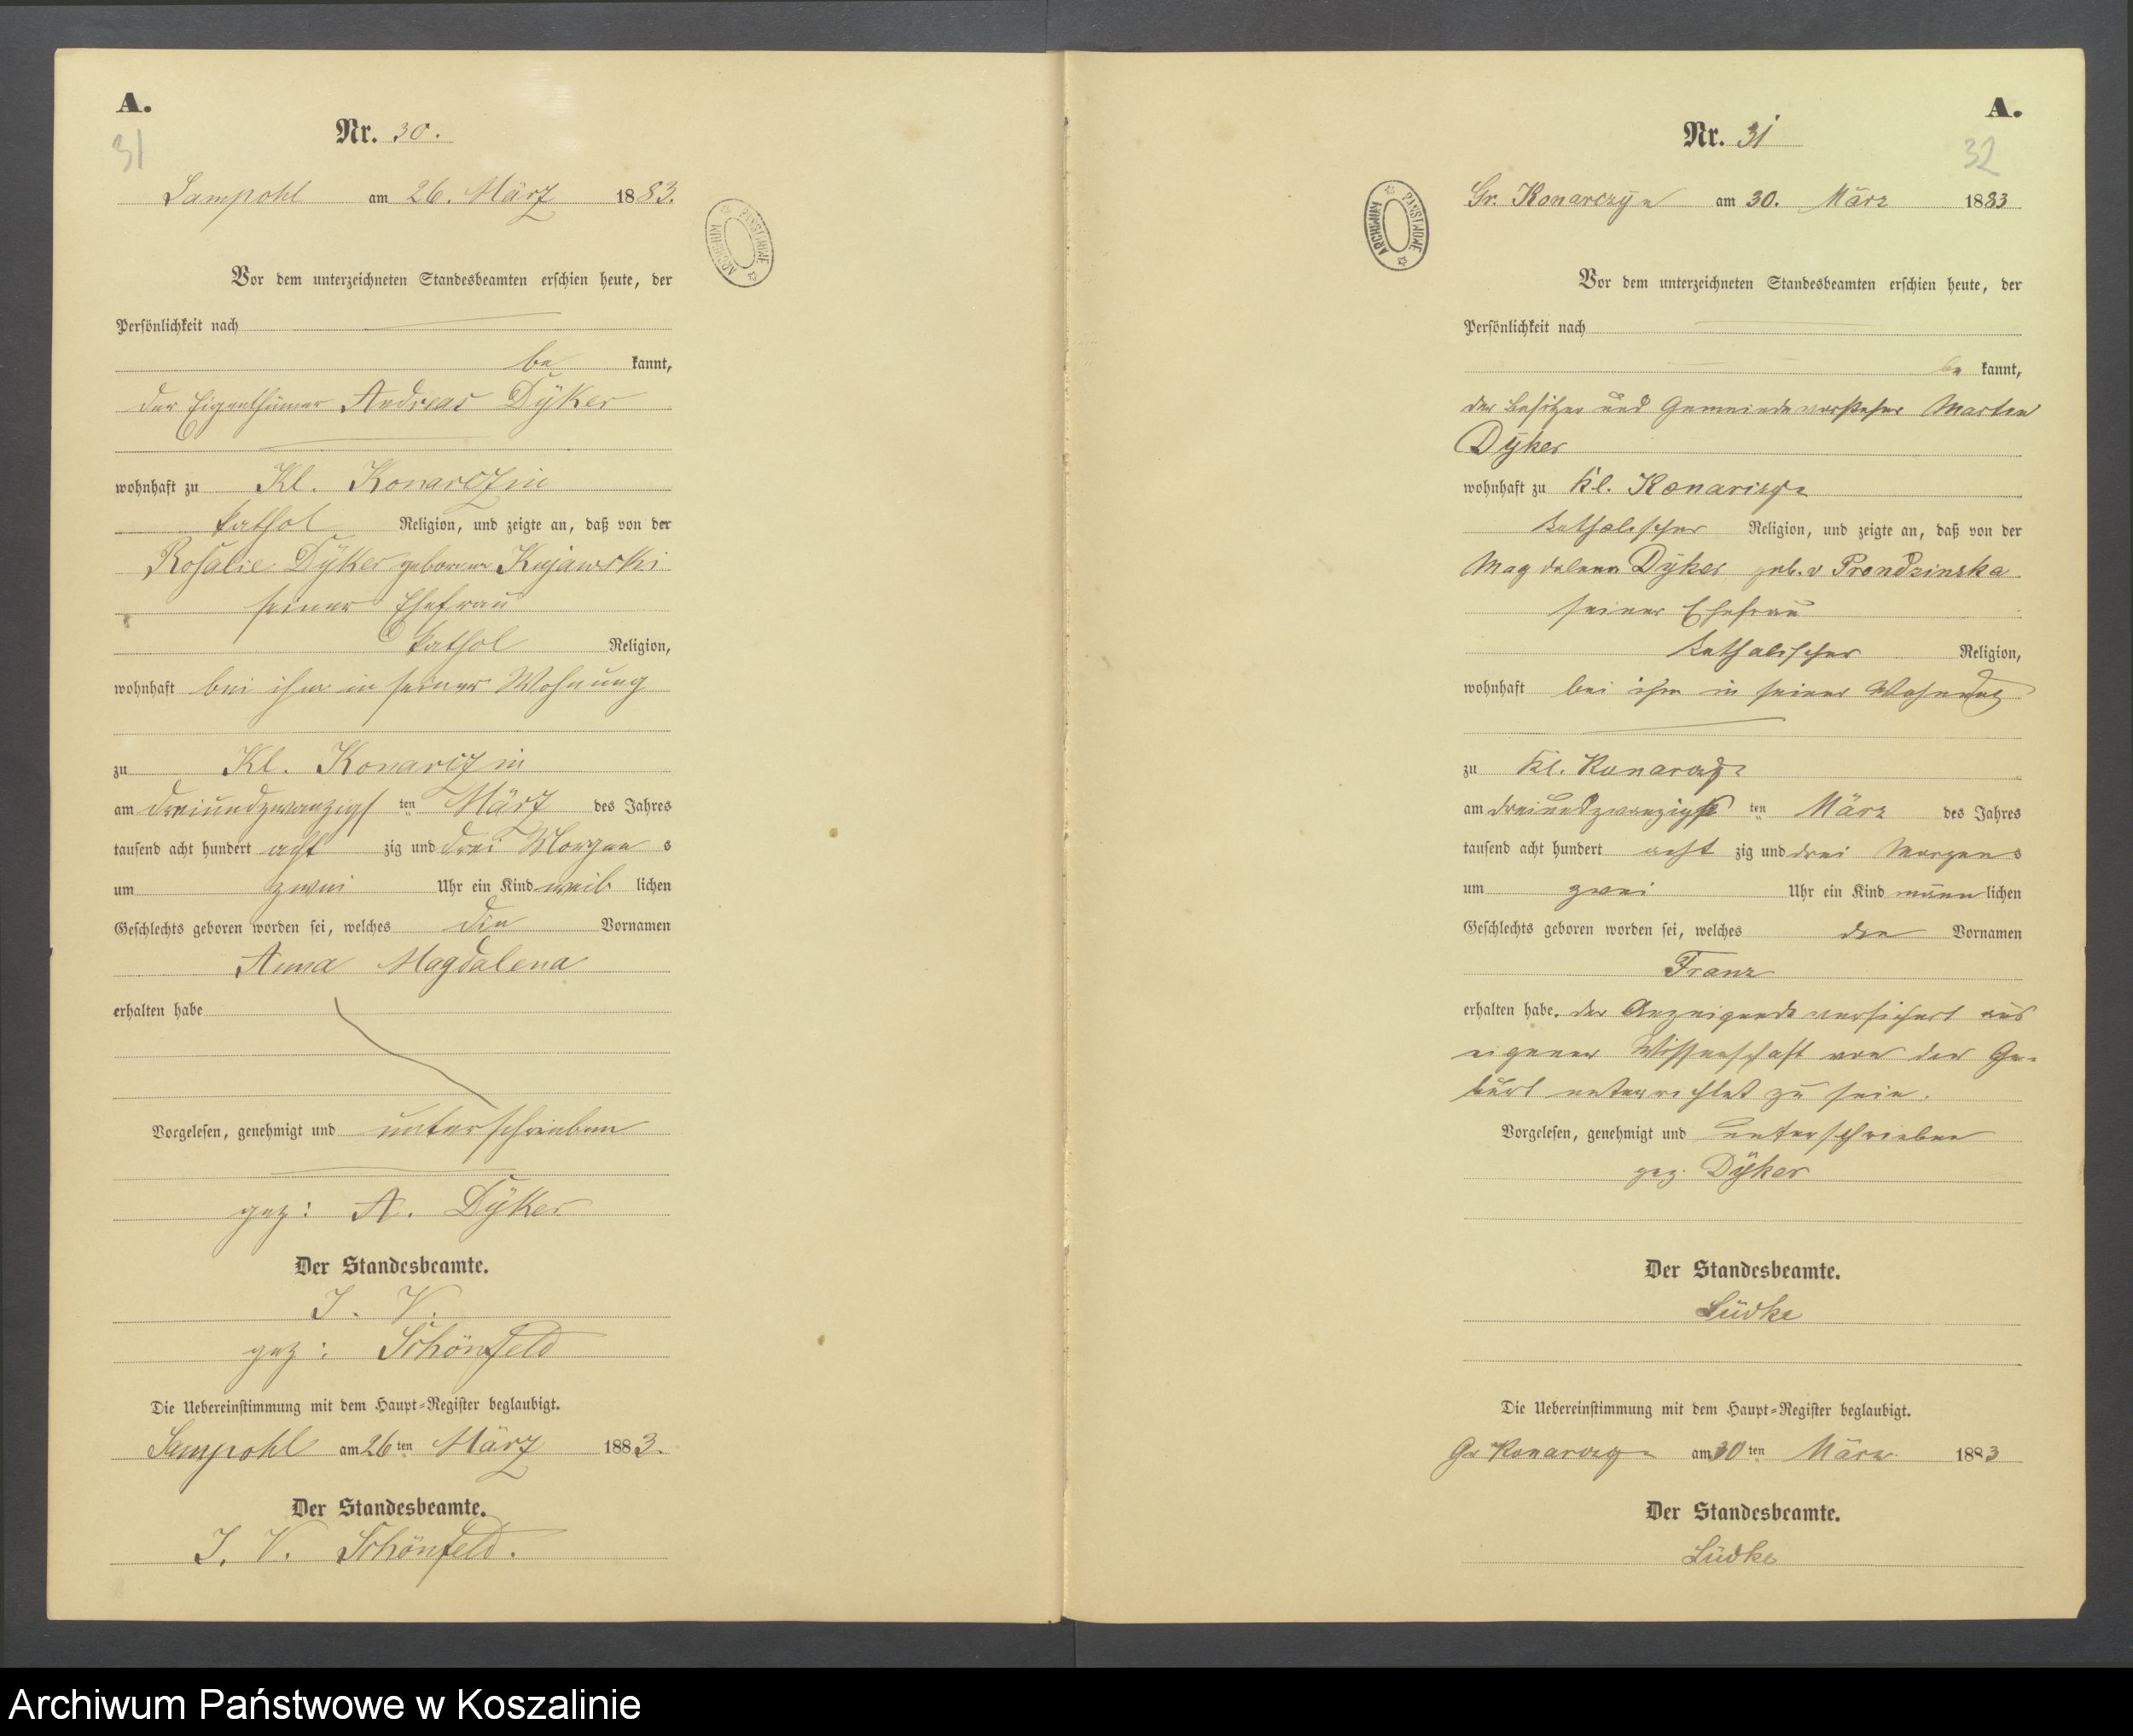 A.
31
Nr. 30.
Sampohl am 26. März 1883.
ARCHIWUM PAŃSTWOWE
Vor dem unterzeichneten Standesbeamten erschien heute, der
Persönlichkeit nach
be kannt,
der Eigenthümer Andreas Dÿker
wohnhaft zu Kl. Konarczin
kathol Religion, und zeigte an, daß von der
Rosalie Dÿker geborene Kujawski
seiner Ehefrau
kathol Religion,
wohnhaft bei ihm in seiner Wohnung
zu Kl. Konarczin
am dreiundzwanzigs ten März des Jahres
tausend acht hundert acht zig und drei Morgen s
um zwei Uhr ein Kind weib lichen
Geschlechts geboren worden sei, welches die Vornamen
Anna Magdalena
erhalten habe
Vorgelesen, genehmigt und unterschrieben
gez: A. Dÿker
Der Standesbeamte.
J. V.
gez: Schönfeld
Die Uebereinstimmung mit dem Haupt-Register beglaubigt.
Sampohl am 26 ten März 1883.
Der Standesbeamte.
J. V. Schönfeld.
A.
32
Nr. 31
Gr. Konarczÿn am 30. März 1883
ARCHIWUM PAŃSTWOWE
Vor dem unterzeichneten Standesbeamten erschien heute, der
Persönlichkeit nach
be kannt,
der Besitzer und Gemeindevorsteher Martin
Dÿker
wohnhaft zu Kl. Konarczyn
katholischer Religion, und zeigte an, daß von der
Magdalena Dÿker geb. v Prondzinska
seiner Ehefrau
katholischer Religion,
wohnhaft bei ihm in seiner Wohnung
zu Kl. Konarczyn
am dreiundzwanzigst ten März des Jahres
tausend acht hundert acht zig und drei Morgens
um zwei Uhr ein Kind männ lichen
Geschlechts geboren worden sei, welches den Vornamen
Franz
erhalten habe. der Anzeigende versichert aus
eigener Wissenschaft von der Ge-
burt unterrichtet zu sein.
Vorgelesen, genehmigt und unterschrieben
gez. Dÿker
Der Standesbeamte.
Lüdke
Die Uebereinstimmung mit dem Haupt-Register beglaubigt.
Gr Konarczyn am 30 ten März 1883
Der Standesbeamte.
Lüdke
Archiwum Państwowe w Koszalinie